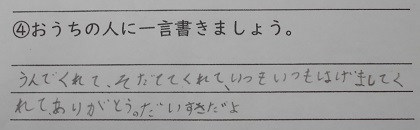 ④おうちの人に一言書きましょう。
うんでくれて、そだててくれて、いつもいつもはげましてく
れて、ありがとう。だいすきだよ